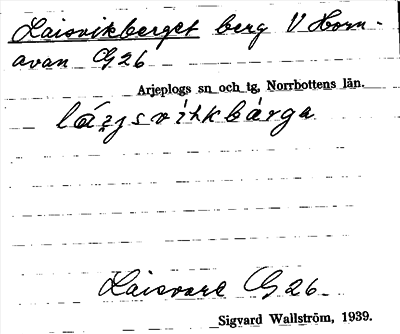 Laisvikberget berg V Horn-
avan G26
Arjeplogs sn och tg, Norrbottens län.
Laisvare G26
Sigvard Wallström, 1939.